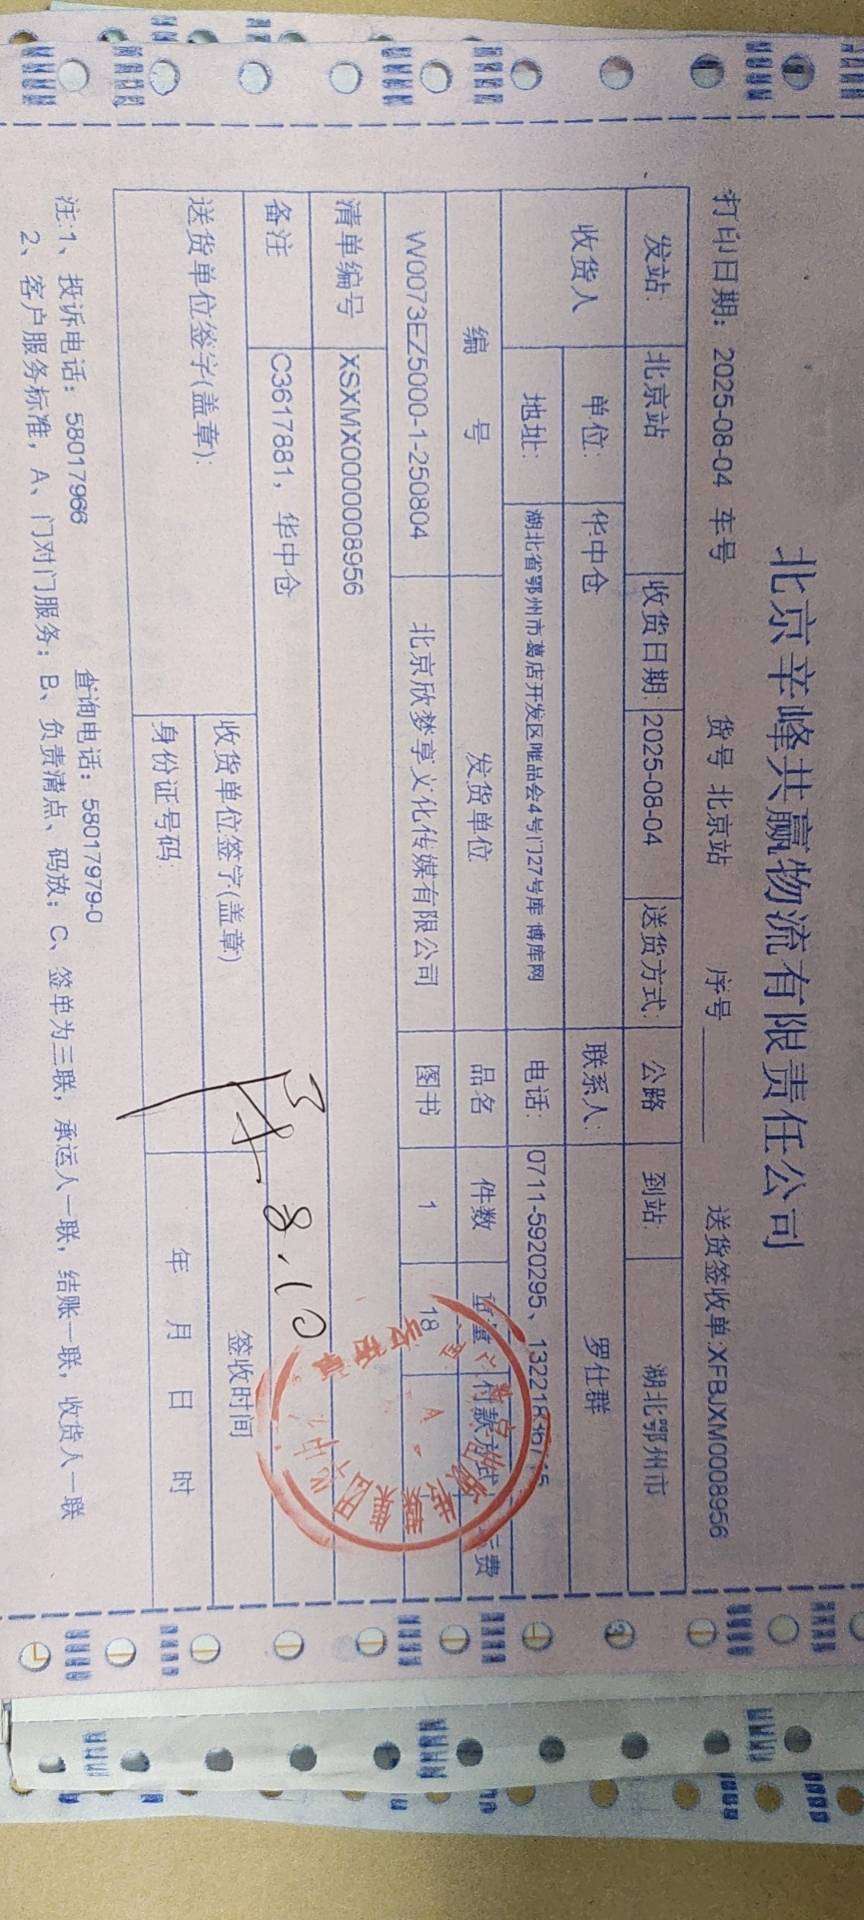 北京辛峰共赢物流有限责任公司
打印日期: 2025-08-04 车号 货号 北京站 序号 送货签收单:XFBJXM0008956
发站: 北京站 收货日期: 2025-08-04 送货方式: 公路 到站: 湖北鄂州市
收货人 单位: 华中仓 联系人: 罗仕群
地址: 湖北省鄂州市葛店开发区唯品会4号门27号库 博库网 电话: 0711-5920295、
编 号 发货单位 品名 件数 重量 付款方式
W0073EZ5000-1-250804 北京欣梦享文化传媒有限公司 图书 1 18
清单编号 XSXMX0000008956
备注 C3617881, 华中仓
送货单位签字(盖章): 收货单位签字(盖章) 签收时间
身份证号码: 年 月 日 时
8.10
注:1、投诉电话: 58017966 查询电话: 58017979-0
2、客户服务标准, A、门对门服务; B、负责清点、码放; C、签单为三联, 承运人一联, 结账一联, 收货人一联